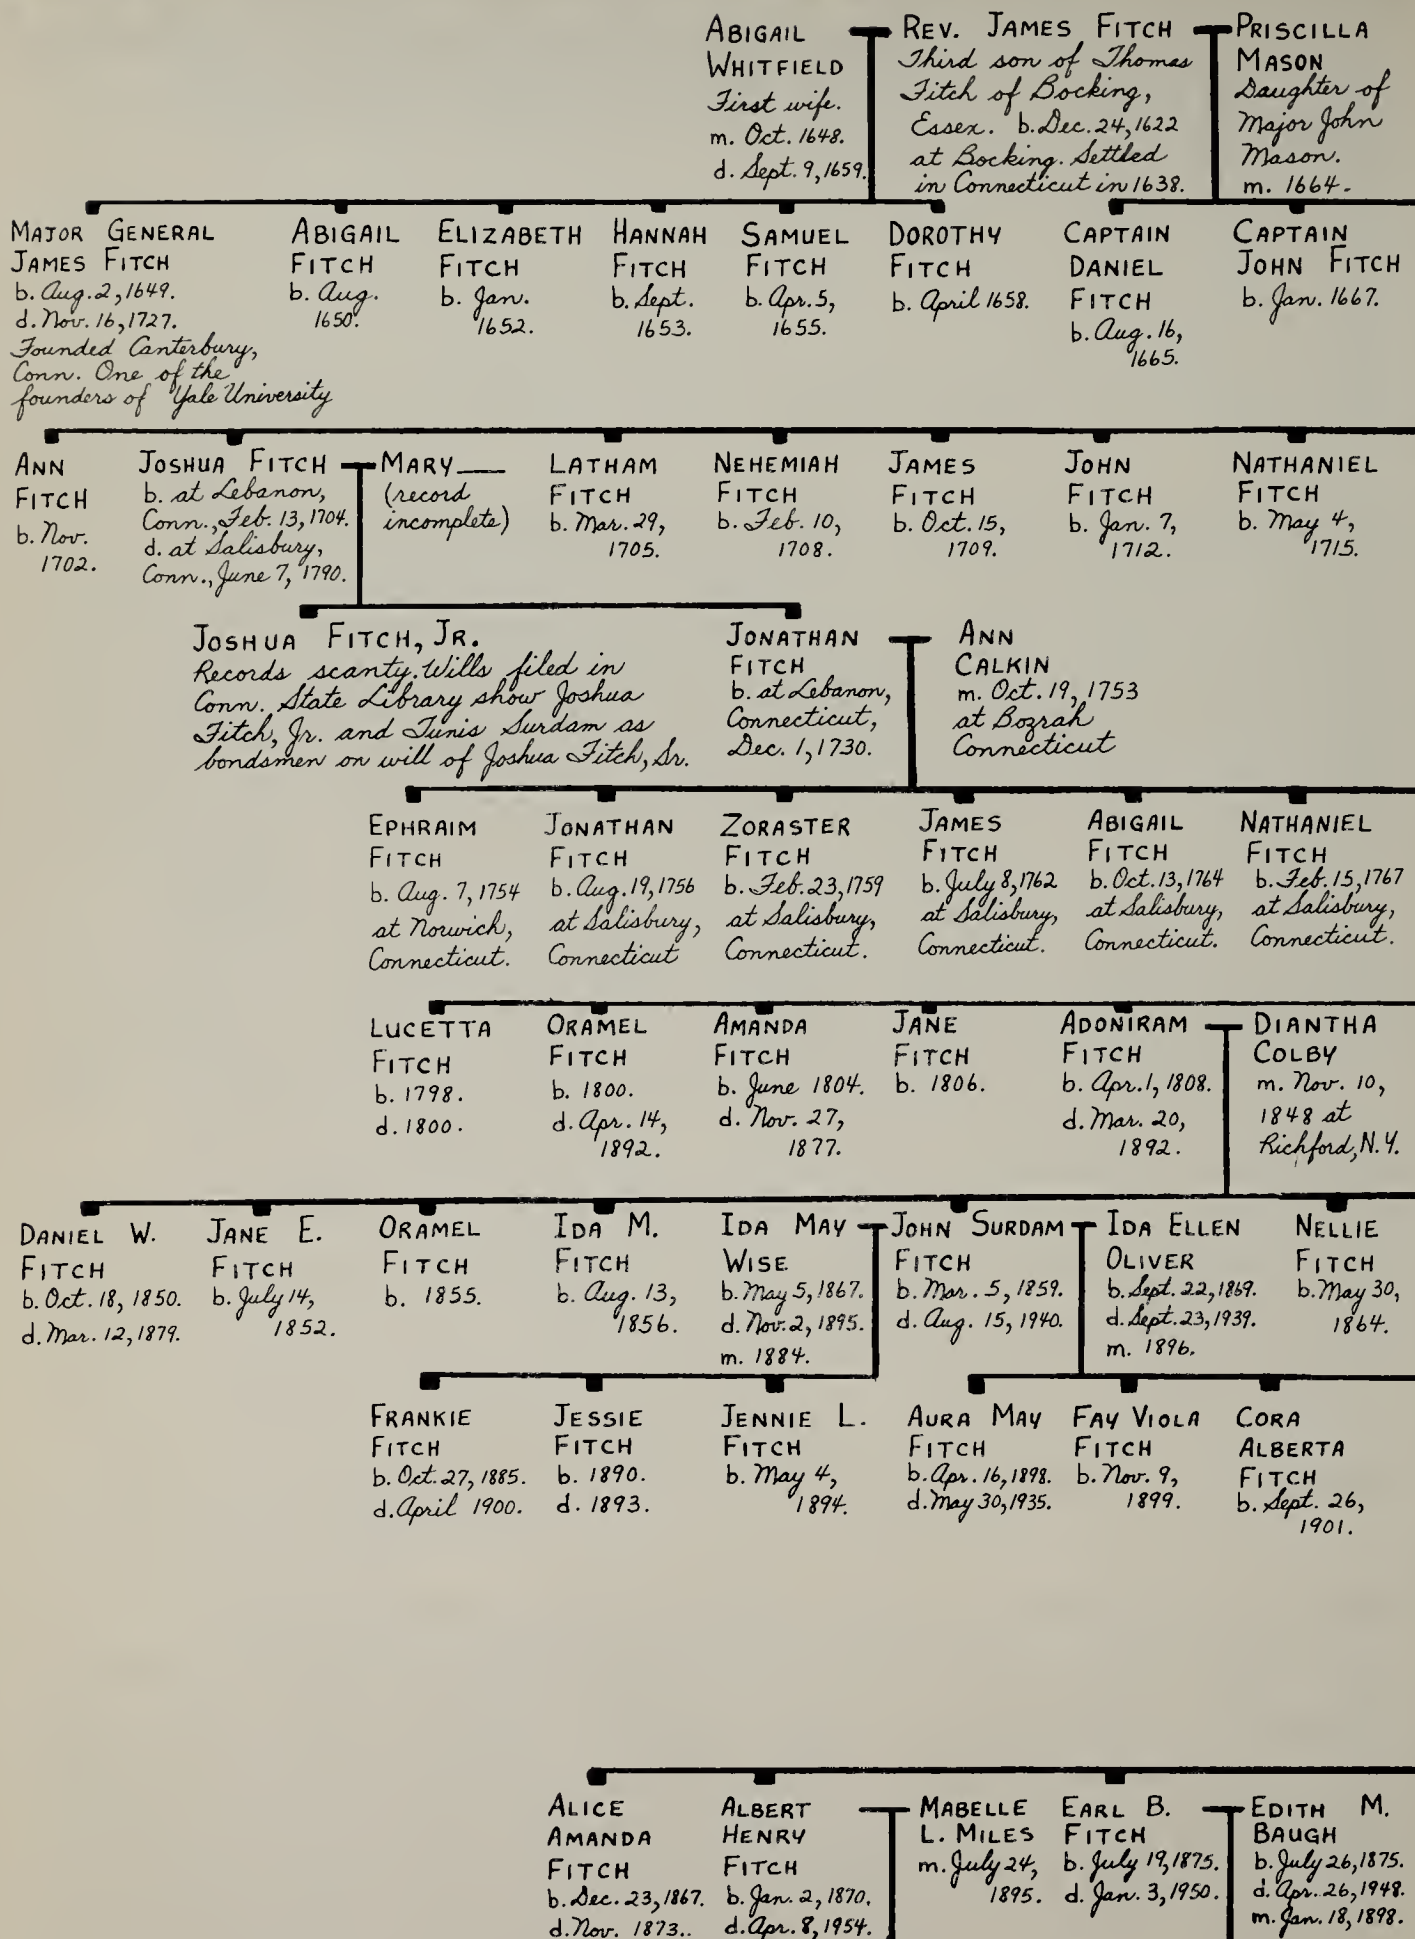 ABIGAIL
WHITFIELD
First wife.
m. Oct. 1648.
d. Sept. 9, 1659.
REV. JAMES FITCH
Third son of Thomas
Fitch of Bocking,
Essex. b. Dec. 24, 1622
at Bocking. Settled
in Connecticut in 1638.
PRISCILLA
MASON
Daughter of
Major John
Mason.
m. 1664.
MAJOR GENERAL
JAMES FITCH
b. Aug. 2, 1649.
d. Nov. 16, 1727.
Founded Canterbury,
Conn. One of the
founders of Yale University
ABIGAIL
FITCH
b. Aug.
1650.
ELIZABETH
FITCH
b. Jan.
1652.
HANNAH
FITCH
b. Sept.
1653.
SAMUEL
FITCH
b. Apr. 5,
1655.
DOROTHY
FITCH
b. April 1658.
CAPTAIN
DANIEL
FITCH
b. Aug. 16,
1665.
CAPTAIN
JOHN FITCH
b. Jan. 1667.
ANN
FITCH
b. Nov.
1702.
JOSHUA FITCH
b. at Lebanon,
Conn., Feb. 13, 1704.
d. at Salisbury,
Conn., June 7, 1790.
MARY ___
(record
incomplete)
LATHAM
FITCH
b. Mar. 29,
1705.
NEHEMIAH
FITCH
b. Feb. 10,
1708.
JAMES
FITCH
b. Oct. 15,
1709.
JOHN
FITCH
b. Jan. 7,
1712.
NATHANIEL
FITCH
b. May 4,
1715.
JOSHUA FITCH, JR.
Records scanty. Wills filed in
Conn. State Library show Joshua
Fitch, Jr. and Tunis Surdam as
bondsmen on will of Joshua Fitch, Sr.
JONATHAN
FITCH
b. at Lebanon,
Connecticut,
Dec. 1, 1730.
ANN
CALKIN
m. Oct. 19, 1753
at Bozrah
Connecticut
EPHRAIM
FITCH
b. Aug. 7, 1754
at Norwich,
Connecticut.
JONATHAN
FITCH
b. Aug. 19, 1756
at Salisbury,
Connecticut
ZORASTER
FITCH
b. Feb. 23, 1759
at Salisbury,
Connecticut.
JAMES
FITCH
b. July 8, 1762
at Salisbury,
Connecticut.
ABIGAIL
FITCH
b. Oct. 13, 1764
at Salisbury,
Connecticut.
NATHANIEL
FITCH
b. Feb. 15, 1767
at Salisbury,
Connecticut.
LUCETTA
FITCH
b. 1798.
d. 1800.
ORAMEL
FITCH
b. 1800.
d. Apr. 14,
1892.
AMANDA
FITCH
b. June 1804.
d. Nov. 27,
1877.
JANE
FITCH
b. 1806.
ADONIRAM
FITCH
b. Apr. 1, 1808.
d. Mar. 20,
1892.
DIANTHA
COLBY
m. Nov. 10,
1848 at
Richford, N.Y.
DANIEL W.
FITCH
b. Oct. 18, 1850.
d. Mar. 12, 1879.
JANE E.
FITCH
b. July 14,
1852.
ORAMEL
FITCH
b. 1855.
IDA M.
FITCH
b. Aug. 13,
1856.
IDA MAY
WISE
b. May 5, 1867.
d. Nov. 2, 1895.
m. 1884.
JOHN SURDAM
FITCH
b. Mar. 5, 1859.
d. Aug. 15, 1940.
IDA ELLEN
OLIVER
b. Sept. 22, 1869.
d. Sept. 23, 1939.
m. 1896.
NELLIE
FITCH
b. May 30,
1864.
FRANKIE
FITCH
b. Oct. 27, 1885.
d. April 1900.
JESSIE
FITCH
b. 1890.
d. 1893.
JENNIE L.
FITCH
b. May 4,
1894.
AURA MAY
FITCH
b. Apr. 16, 1898.
d. May 30, 1935.
FAY VIOLA
FITCH
b. Nov. 9,
1899.
CORA
ALBERTA
FITCH
b. Sept. 26,
1901.
ALICE
AMANDA
FITCH
b. Dec. 23, 1867.
d. Nov. 1873..
ALBERT
HENRY
FITCH
b. Jan. 2, 1870.
d. Apr. 8, 1954.
MABELLE
L. MILES
m. July 24,
1895.
EARL B.
FITCH
b. July 19, 1875.
d. Jan. 3, 1950.
EDITH M.
BAUGH
b. July 26, 1875.
d. Apr. 26, 1948.
m. Jan. 18, 1898.